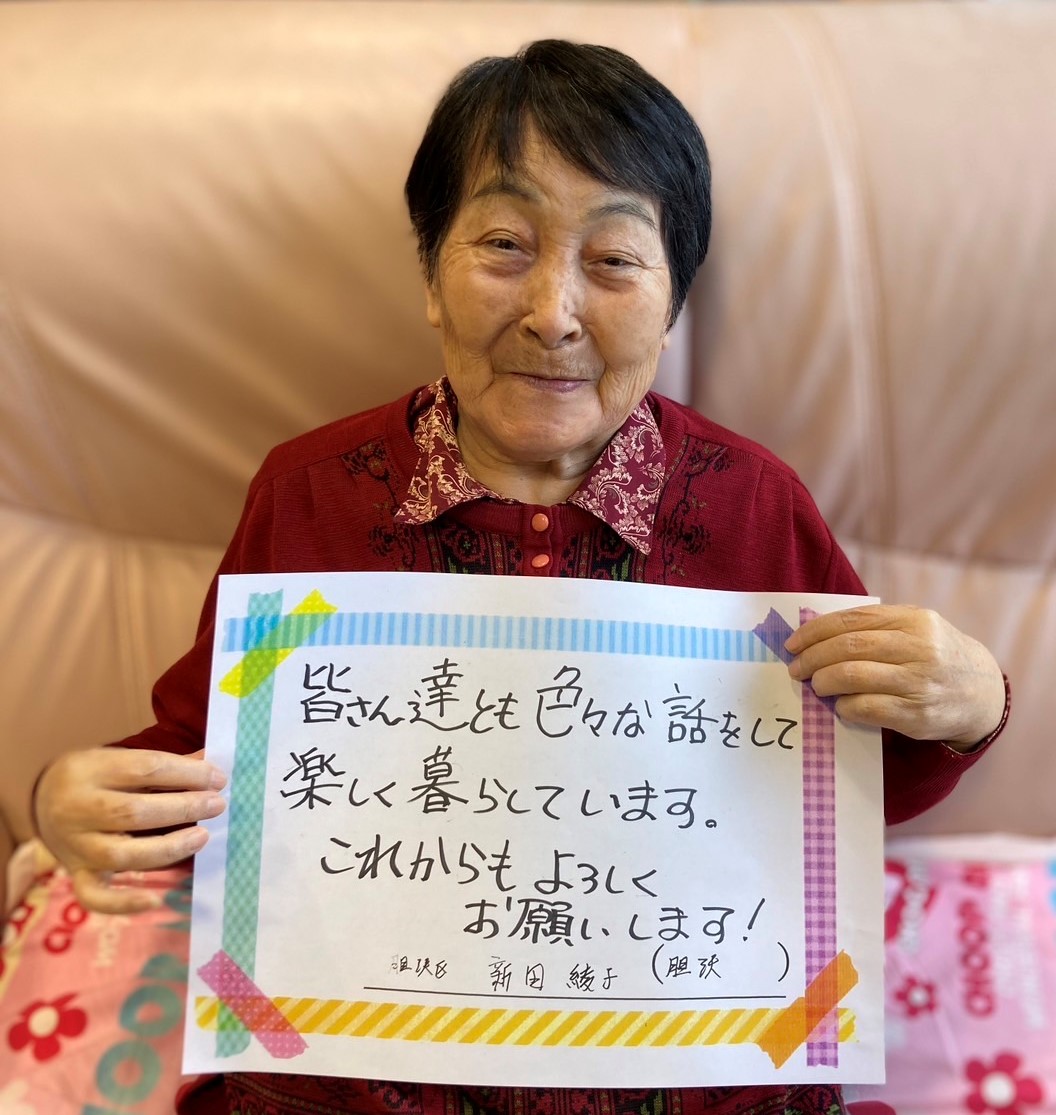 皆さん達とも色々な話をして
楽しく暮らしています。
これからもよろしく
お願いします!
胆沢区 新田 綾子 (胆沢 )